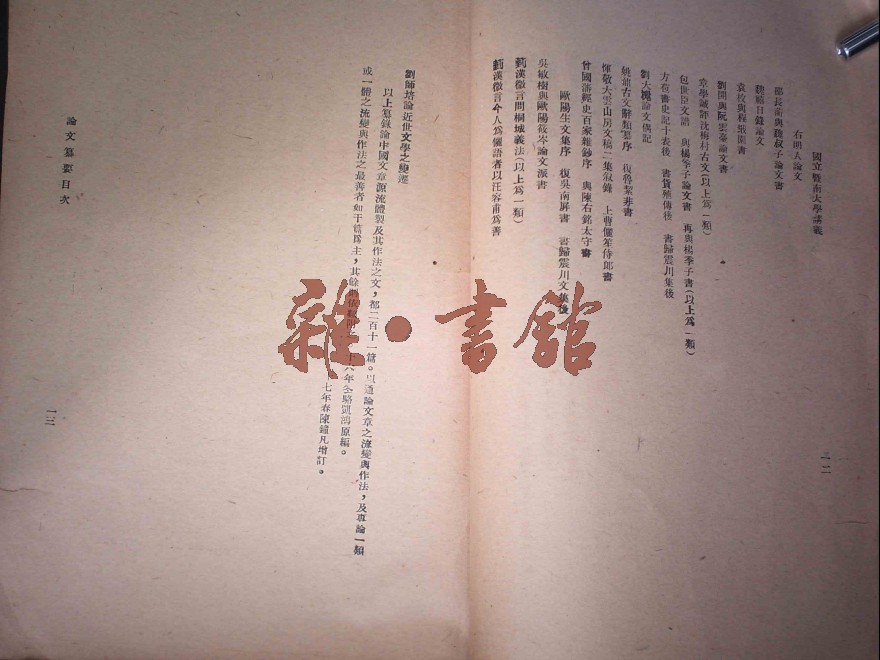 國立暨南大學講義
右明人論文
邵長蘅與魏叔子論文書
魏禧目錄論文
袁枚與程蕺園書
劉開與阮雲臺論文書
章學誠評沈梅村古文(以上爲一類)
包世臣文譜 與楊季子論文書 再與楊季子書(以上爲一類)
方苞書史記十表後 書貨殖傳後 書歸震川集後
劉大櫆論文偶記
姚鼐古文辭類纂序 復魯絜非書
惲敬大雲山房文稿二集敘錄 上曹儷笙侍郎書
曾國藩經史百家雜鈔序 與陳右銘太守書
歐陽生文集序 復吳南屏書 書歸震川文集後
吳敏樹與歐陽筱岑論文派書
薊漢微言問桐城義法(以上爲一類)
薊漢微言今人爲儷語者以汪容甫爲善
一二
劉師培論近世文學之變遷
以上纂錄論中國文章源流體製及其作法之文,都二百十一篇。以通論文章之流變與作法,及專論一類
或一體之流變與作法之最善者如干篇爲主,其餘則依
年
劉鴻原編。
七年春陳鐘凡增訂。
論文纂要目次
一三
雜·書館